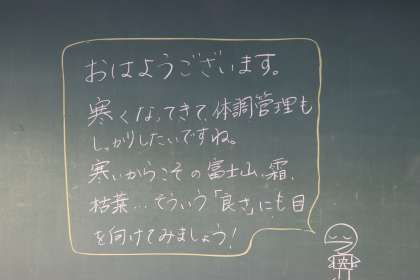 おはようございます。
寒くなってきて、体調管理も
しっかりしたいですね。
寒いからこその富士山、霜、
枯葉…そういう「良さ」にも目
を向けてみましょう！